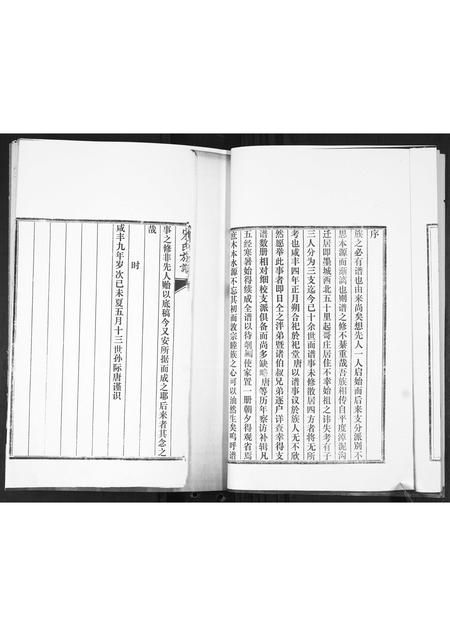 序
族之必有谱也由来尚矣想先人一人启始而后来支分派别不
思本源而渐漓也则谱之修不綦重哉吾族相传自平度淖泥沟
迁居即墨城西北五十里起哥庄居住不幸始祖之讳失考有子
三人分为三支迄今已十余世而谱事未修散居四方者将无所
考也咸丰四年正月朔合祀於祀堂唐以谱事议於族人无不欣
然愿举此事者即日全之泮弟暨诸伯叔兄弟逐户详查幸得支
谱数册相对细校支派俱备而尚多缺略唐等历年察访补辑凡
五经寒暑始得续成全谱以待剞劂使家置一册朝夕得观省焉
木本水源不忘其初而敦宗睦族之心可以油然生矣呜呼谱
氏族谱
事之修非先人贻以底稿今又安所据而成之耶后来者其念之
哉
时
咸丰九年岁次己未夏五月十三世孙际唐谨识